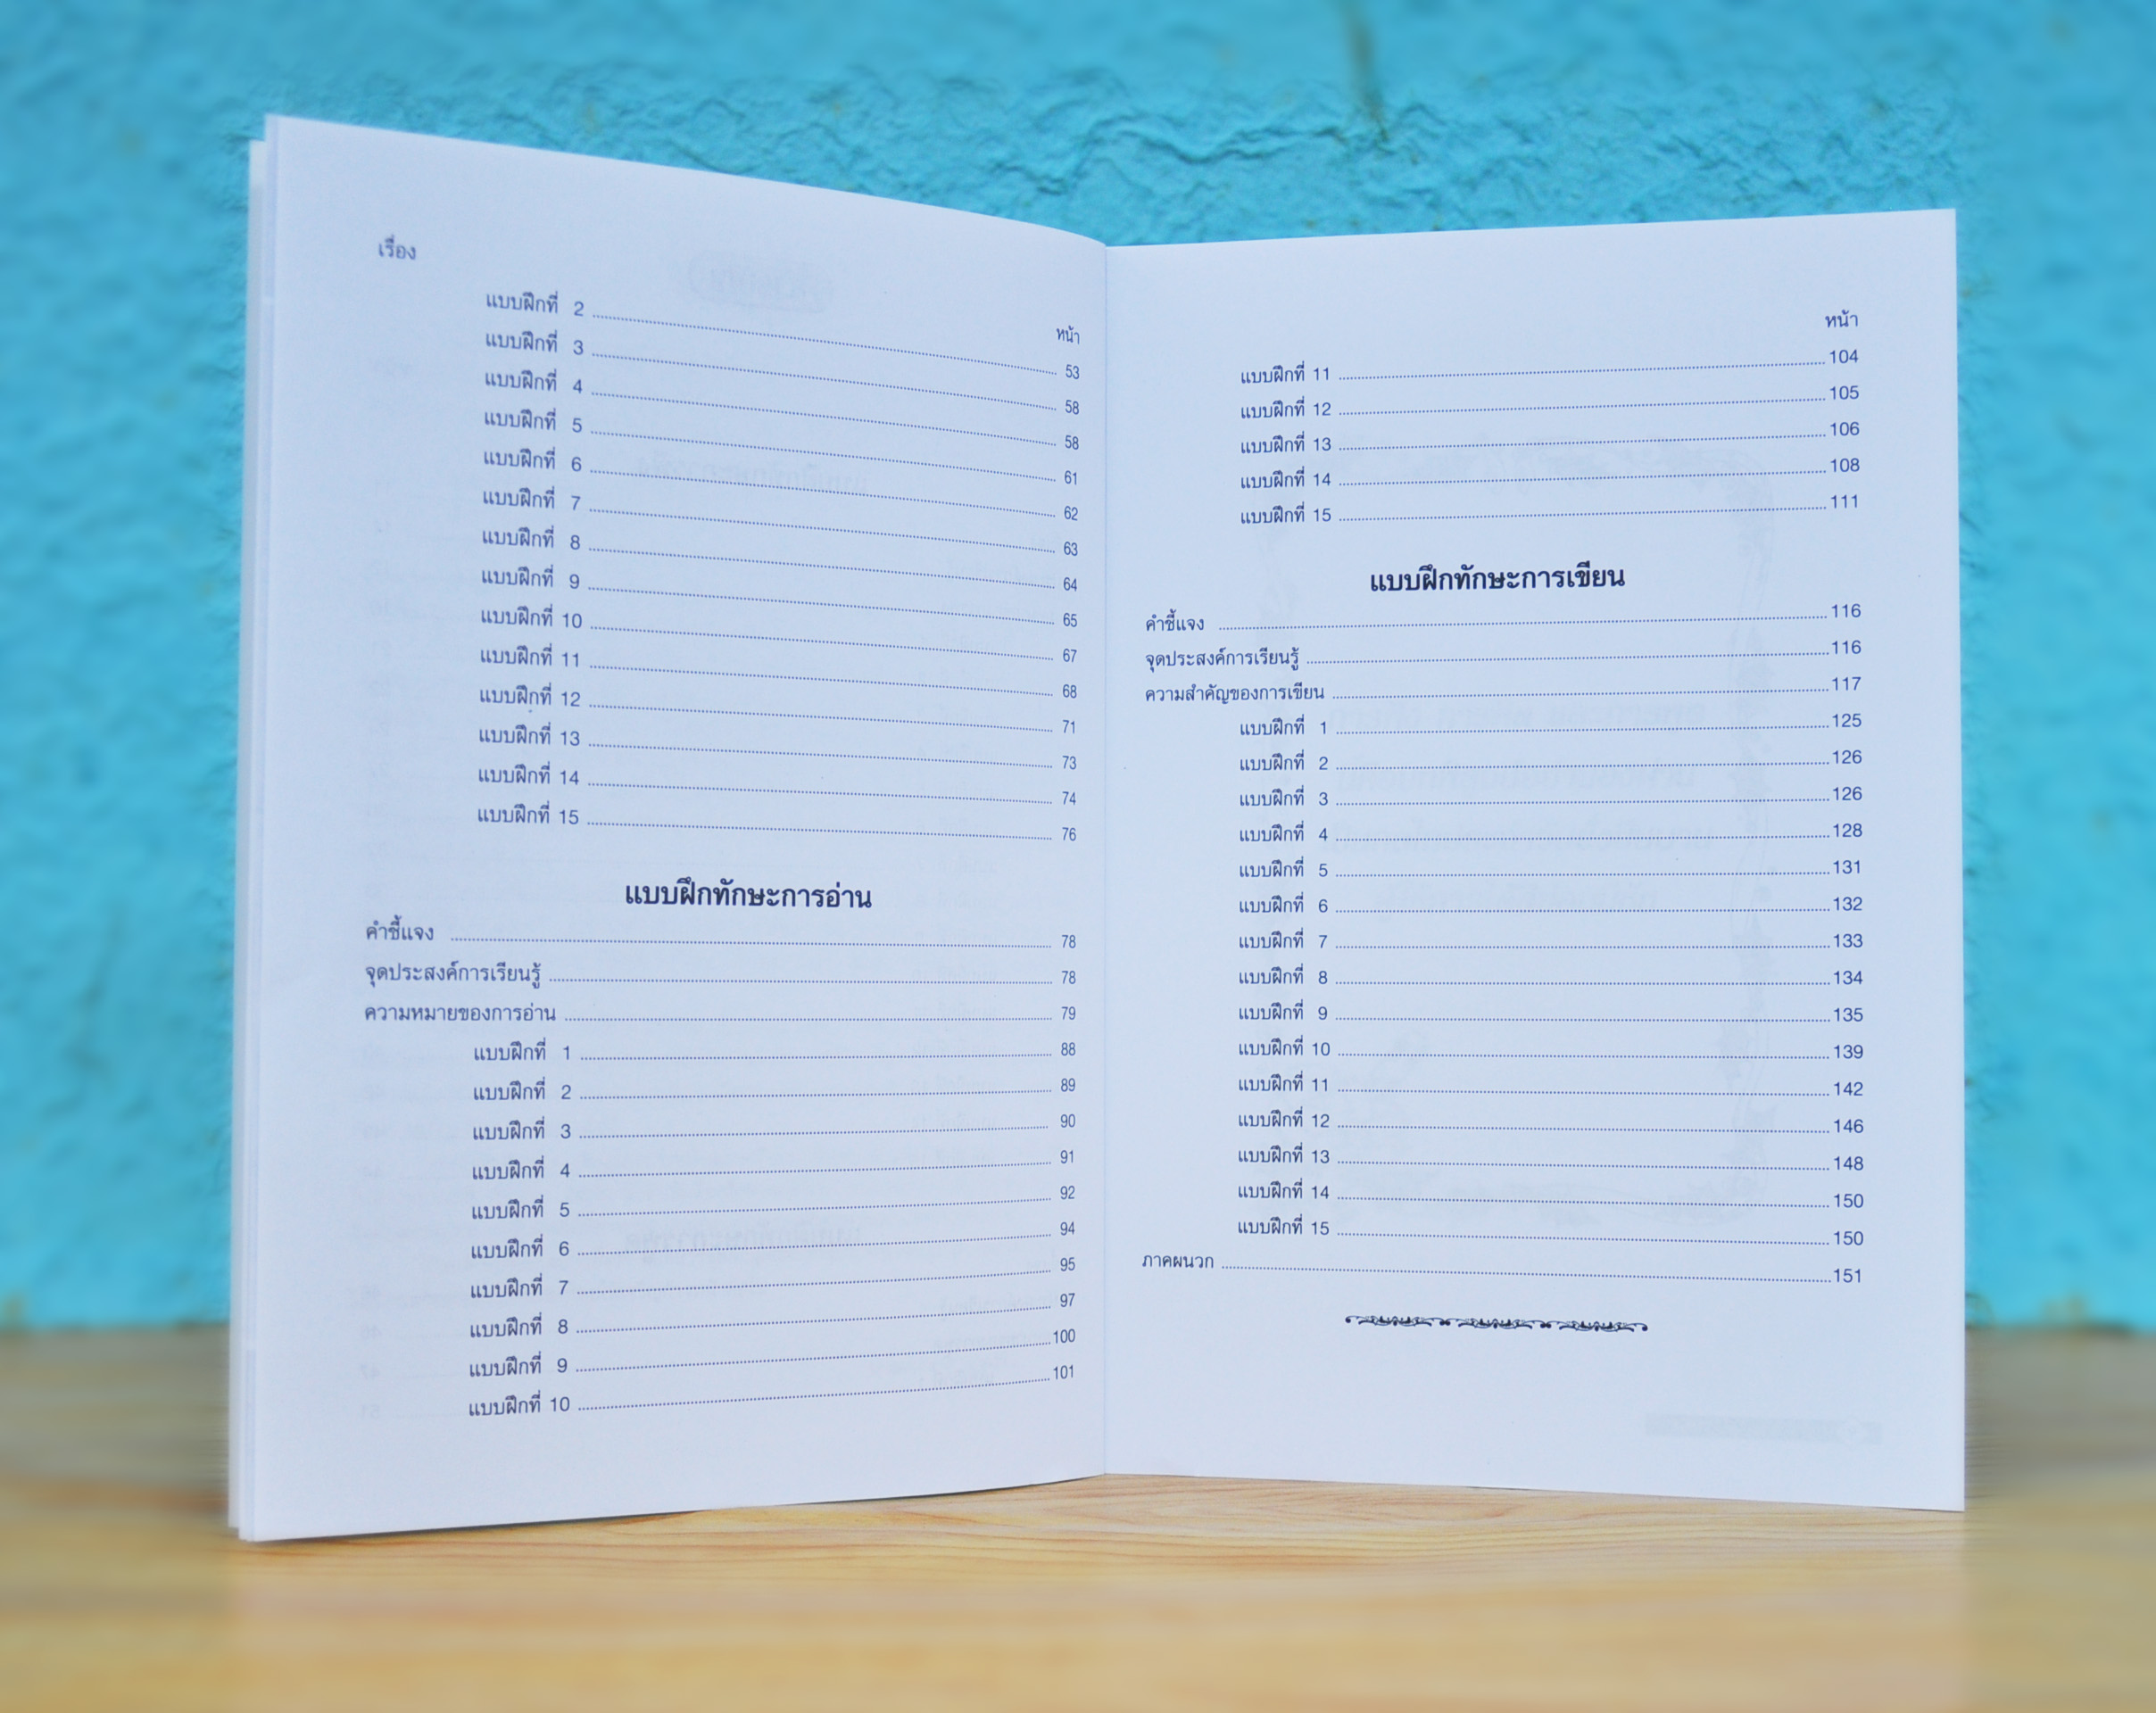 เรื่อง
หน้า
แบบฝึกที่ 2 ........ 53
แบบฝึกที่ 3 ........ 58
แบบฝึกที่ 4 ........ 58
แบบฝึกที่ 5 ........ 61
แบบฝึกที่ 6 ........ 62
แบบฝึกที่ 7 ........ 63
แบบฝึกที่ 8 ........ 64
แบบฝึกที่ 9 ........ 65
แบบฝึกที่ 10 ........ 67
แบบฝึกที่ 11 ........ 68
แบบฝึกที่ 12 ........ 71
แบบฝึกที่ 13 ........ 73
แบบฝึกที่ 14 ........ 74
แบบฝึกที่ 15 ........ 76
แบบฝึกทักษะการอ่าน
คำชี้แจง ........ 78
จุดประสงค์การเรียนรู้ ........ 78
ความหมายของการอ่าน ........ 79
แบบฝึกที่ 1 ........ 88
แบบฝึกที่ 2 ........ 89
แบบฝึกที่ 3 ........ 90
แบบฝึกที่ 4 ........ 91
แบบฝึกที่ 5 ........ 92
แบบฝึกที่ 6 ........ 94
แบบฝึกที่ 7 ........ 95
แบบฝึกที่ 8 ........ 97
แบบฝึกที่ 9 ........ 100
แบบฝึกที่ 10 ........ 101
หน้า
แบบฝึกที่ 11 ........ 104
แบบฝึกที่ 12 ........ 105
แบบฝึกที่ 13 ........ 106
แบบฝึกที่ 14 ........ 108
แบบฝึกที่ 15 ........ 111
แบบฝึกทักษะการเขียน
คำชี้แจง ........ 116
จุดประสงค์การเรียนรู้ ........ 116
ความสำคัญของการเขียน ........ 117
แบบฝึกที่ 1 ........ 125
แบบฝึกที่ 2 ........ 126
แบบฝึกที่ 3 ........ 126
แบบฝึกที่ 4 ........ 128
แบบฝึกที่ 5 ........ 131
แบบฝึกที่ 6 ........ 132
แบบฝึกที่ 7 ........ 133
แบบฝึกที่ 8 ........ 134
แบบฝึกที่ 9 ........ 135
แบบฝึกที่ 10 ........ 139
แบบฝึกที่ 11 ........ 142
แบบฝึกที่ 12 ........ 146
แบบฝึกที่ 13 ........ 148
แบบฝึกที่ 14 ........ 150
แบบฝึกที่ 15 ........ 150
ภาคผนวก ........ 151